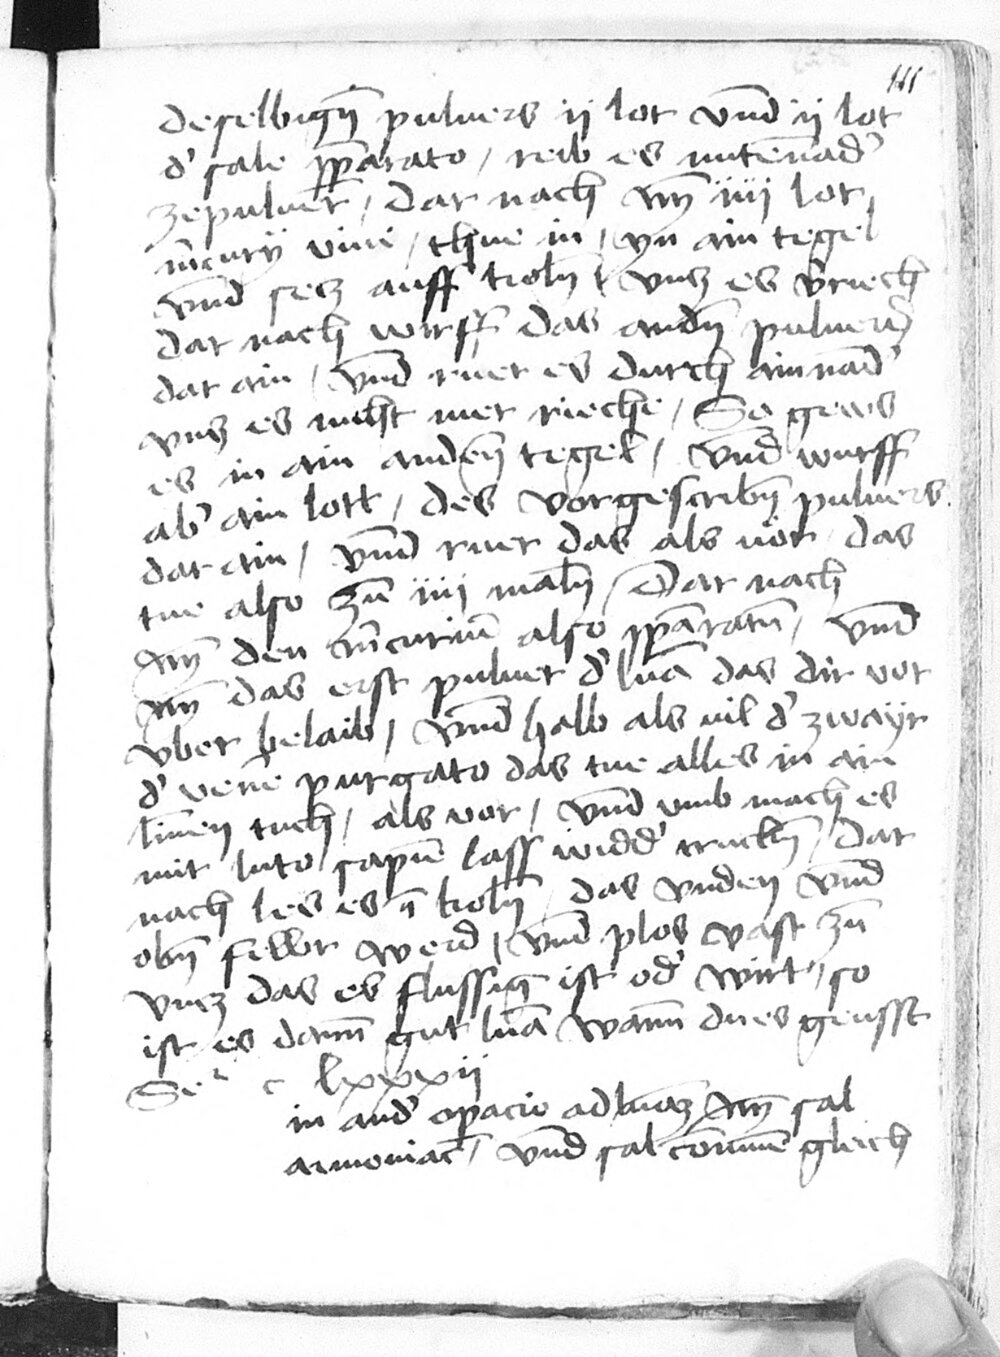 111
deselbign̄ pulvers ij lot vnd ij lot
d' sale pparato / reib es mitenād'
zepulver / Dar nach Nȳ iiij lot
m̄curij vivi / thue in / yn ain tegel
vnd secz auff koln̄ / vncz es v̄riech
dar nach wirff das andn̄ pulver
dar ain / vnd ruer es durch ainnād'
vncz es nicht mer rieche / So geus
es in ain anden̄ tegel / vnd wurff
ab' ain lott / des vorgescribn̄ pulvers
dar ain / vnd ruer das als vor das
tue also zū iiij maln̄ / Dar nach
Nȳ den m̄curiū also pparatū / vnd
Nȳ das erst pulver d' luā das dir vor
vber belaib / vnd halb als vil d' zwayr
d' vene purgato das tue alles in ain
linen tuch / als vor / vnd vmb mach es
mit luto sapiē lass widd' truckn̄ / Dar
nach les es ī koln̄ / das vnden vnd
obn̄ fewr werd / vnd plos vast zū
vncz das es flussig ist od' wirt / so
ist es dann gut luā wann dues geusst
Se^r c lxxxii
in and' opacio ad lunaz Nȳ sal
armoniac / vnd sal cōmune gleich